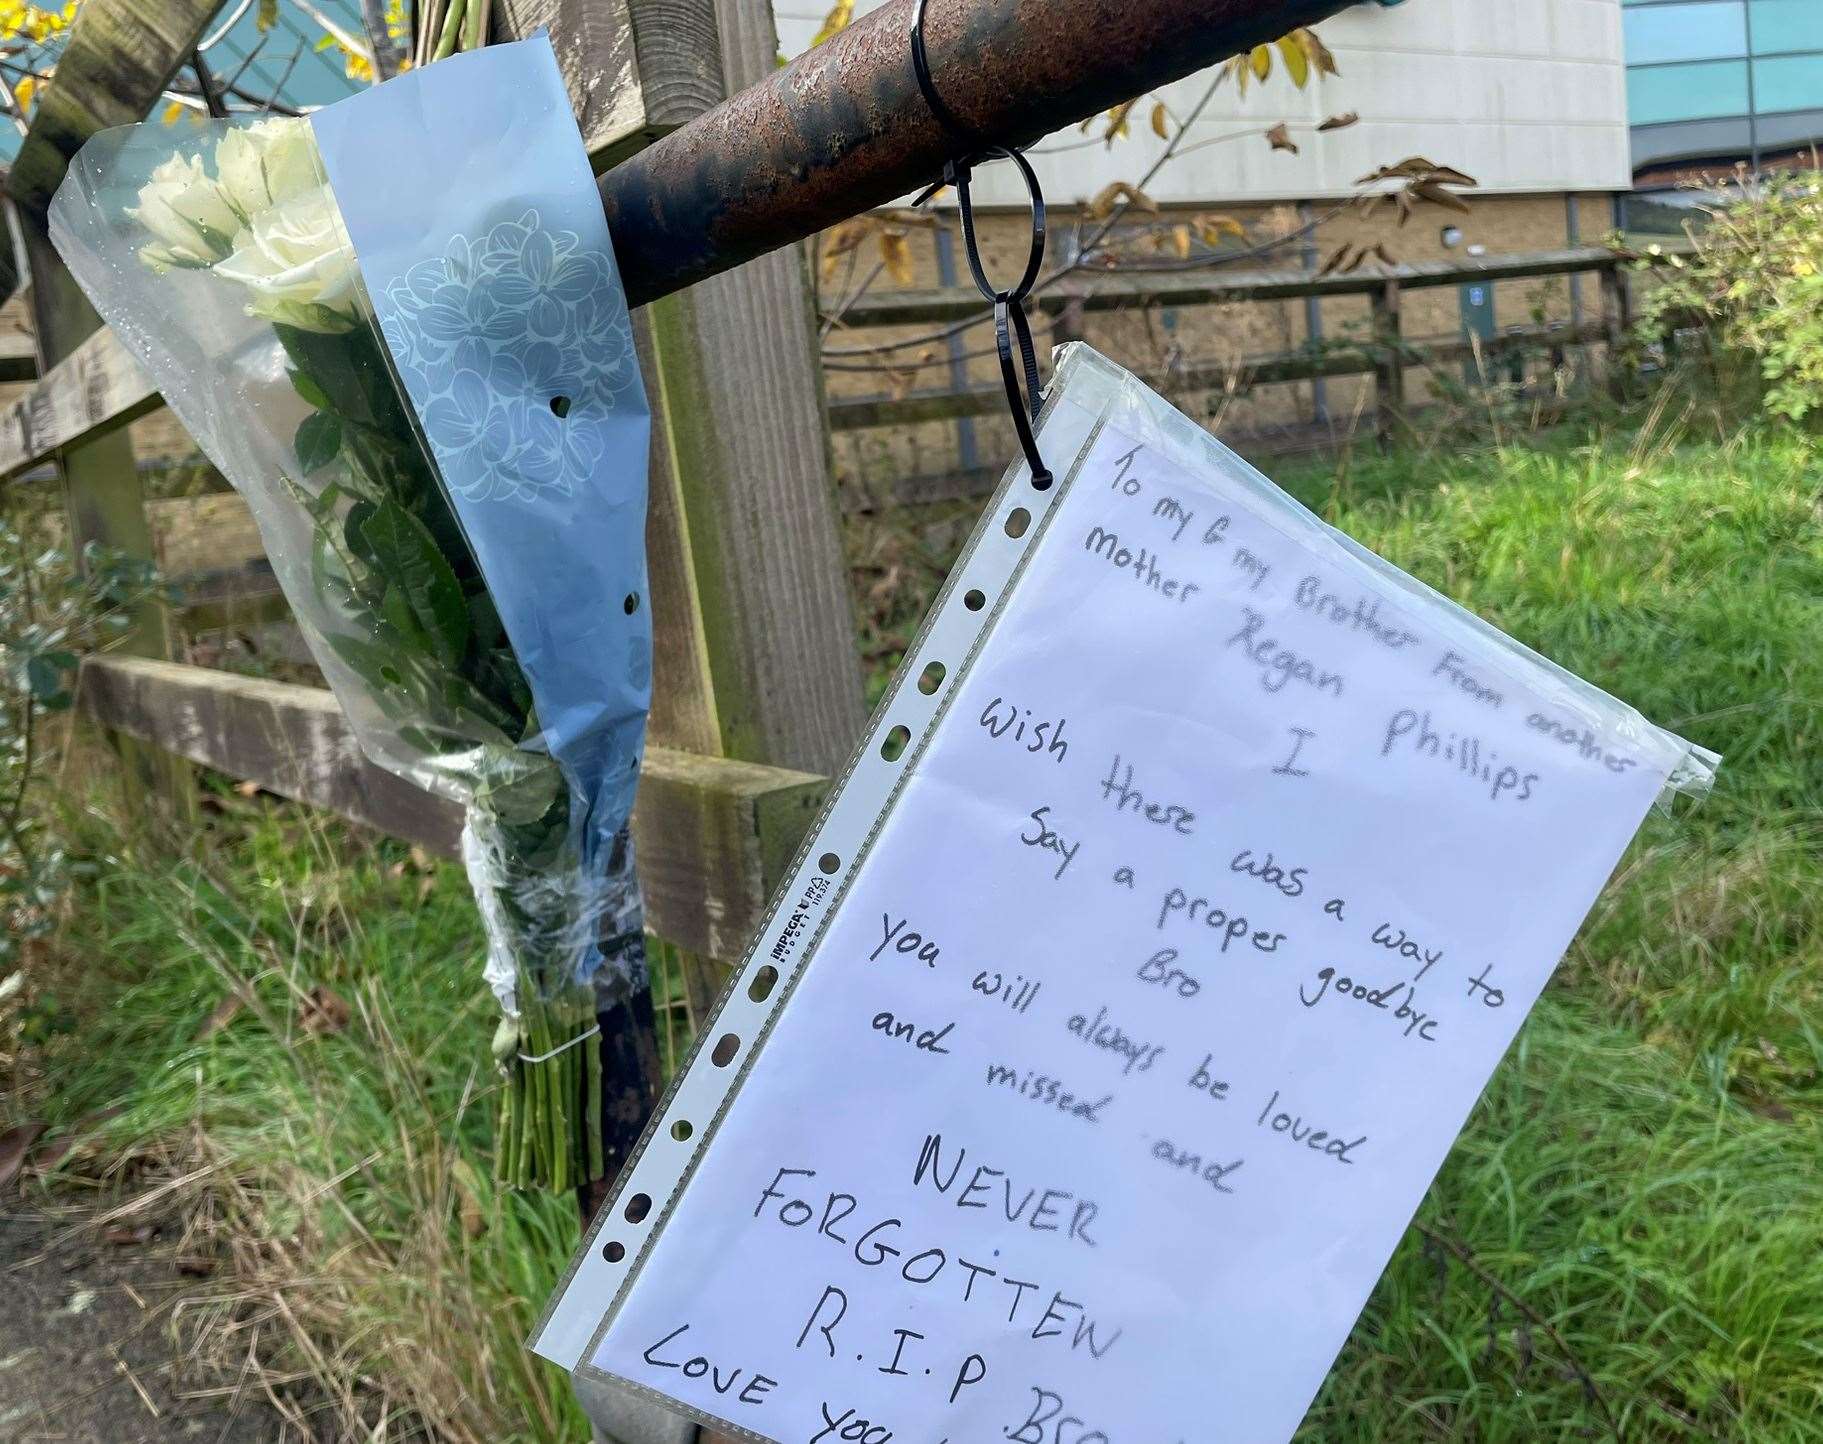 To my G my Brother From another
Mother Regan Phillips
I
Wish there was a way to
Say a proper goodbye
Bro
You will always be loved
and missed and
NEVER
FORGOTTEN
R.I.P Bro
LOVE You
IMPEGA
BUDGET
PP